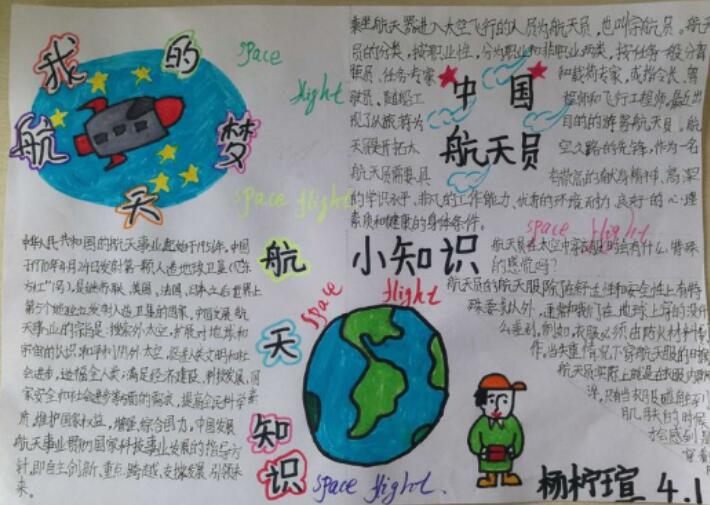 我的航天梦
space
flight
space flight
中华人民共和国的航天事业起始于1956年。中国
于1970年4月24日发射第一颗人造地球卫星
是继苏联、美国、法国、日本之后世界上
第5个独立发射人造卫星的国家。中国发展航
天事业的宗旨是:探索外太空,扩展对地球和
宇宙的认识;和平利用外太空,促进人类文明和社
会进步,造福全人类;满足经济建设、科技发展、国
家安全和社会进步等方面的需求,提高全民科学素
质,维护国家权益,增强综合国力。中国发展
航天事业贯彻国家科技事业发展的指导方
针,即自主创新、重点跨越、支撑发展、引领未
来。
乘坐航天器进入太空飞行的人员为航天员,也叫宇航员。航天
员的分类,按职业性,分为职业和非职业两类,按任务一般分
任务专家和载荷专家,或指令长、驾
驶员、随船工程师和飞行工程师。最近出
现了以旅游为目的的游客航天员。航
天员是开拓太空之路的先锋,作为一名
航天员需要具有崇高的献身精神、高深
的学识水平、非凡的工作能力、优秀的环境耐力、良好的心理
素质和健康的身体条件。
中国
航天员
space flight
小知识
航天员在太空中穿衣服时会有什么特殊
的感觉吗?
航天员的航天服除了在舒适性和安全性上有特
殊要求以外,通常和我们在地球上穿的没什
么差别。例如,衣服必须由防火材料制
作。当失重情况下穿航天服的时候
航天员实际上就是在衣服内
肌肤的时候
才会感到
航天知识
space flight
space flight.
杨柠瑄 4.1